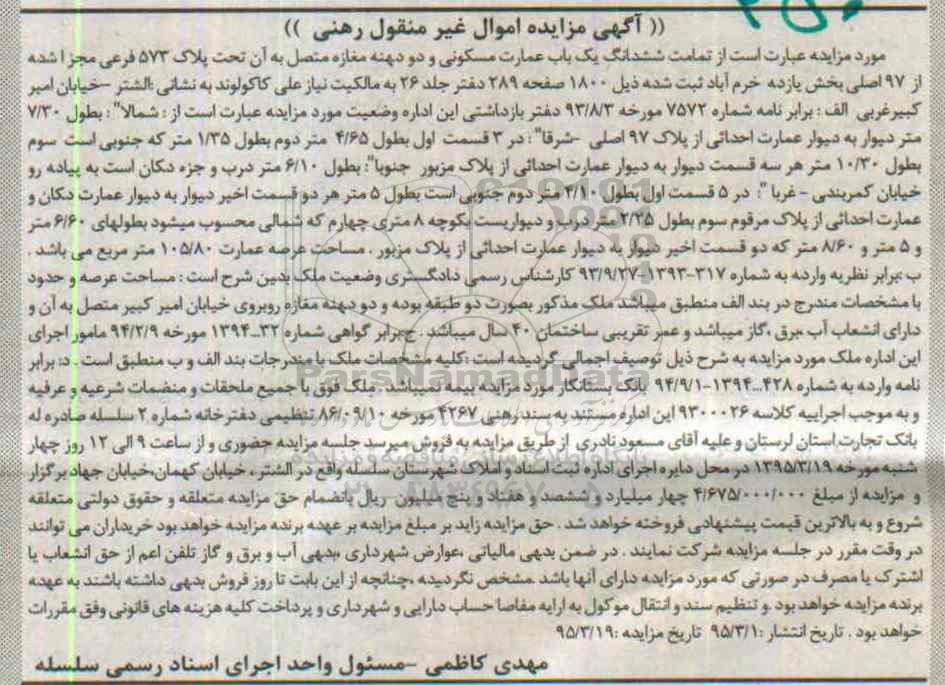 (( آگهی مزایده اموال غیر منقول رهنی ))
مورد مزایده عبارت است از تمامت ششدانگ یک باب عمارت مسکونی و دو دهنه مغازه متصل به آن تحت پلاک ۵۷۳ فرعی مجزا شده
از ۹۷ اصلی بخش یازده خرم آباد ثبت شده ذیل ۱۸۰۰ صفحه ۲۸۹ دفتر جلد ۲۶ به مالکیت نیاز علی کاکولوند به نشانی :الشتر –خیابان امیر
کبیرغربی الف : برابر نامه شماره ۷۵۷۲ مورخه ۹۳/۸/۳ دفتر بازداشتی این اداره وضعیت مورد مزایده عبارت است از : شمالا" : بطول ۷/۳۰
متر دیوار به دیوار عمارت احداثی از پلاک ۹۷ اصلی –شرقا" : در ۳ قسمت اول بطول ۴/۶۵ متر دوم بطول ۱/۳۵ متر که جنوبی است سوم
بطول ۱۰/۳۰ متر هر سه قسمت دیوار به دیوار عمارت احداثی از پلاک مزبور جنوبا": بطول ۶/۱۰ متر درب و جزء دکان است به پیاده رو
خیابان کمربندی – غربا ": در ۵ قسمت اول بطول ۴/۱۰ متر دوم جنوبی است بطول ۵ متر هر دو قسمت اخیر دیوار به دیوار عمارت دکان و
عمارت احداثی از پلاک مرقوم سوم بطول ۲/۲۵ متر درب و دیواریست بکوچه ۸ متری چهارم که شمالی محسوب میشود بطولهای ۶/۶۰ متر
و ۵ متر و ۸/۶۰ متر که دو قسمت اخیر دیوار به دیوار عمارت احداثی از پلاک مزبور . مساحت عرصه عمارت ۱۰۵/۸۰ متر مربع می باشد .
ب :برابر نظریه وارده به شماره ۳۱۷-۱۳۹۳-۹۳/۹/۲۷ کارشناس رسمی دادگستری وضعیت ملک بدین شرح است : مساحت عرصه و حدود
با مشخصات مندرج در بند الف منطبق میباشد ملک مذکور بصورت دو طبقه بوده و دو دهنه مغازه روبروی خیابان امیر کبیر متصل به آن و
دارای انشعاب آب ،برق ،گاز میباشد و عمر تقریبی ساختمان ۴۰ سال میباشد . ج:برابر گواهی شماره ۳۲_۱۳۹۴ مورخه ۹۴/۲/۹ مامور اجرای
این اداره ملک مورد مزایده به شرح ذیل توصیف اجمالی گردیده است :کلیه مشخصات ملک با مندرجات بند الف و ب منطبق است . د: برابر
نامه وارده به شماره ۴۲۸_۱۳۹۴-۹۴/۹/۱ بانک بستانکار مورد مزایده بیمه نمیباشد . ملک فوق با جمیع ملحقات و منضمات شرعیه و عرفیه
و به موجب اجراییه کلاسه ۹۳۰۰۰۲۶ این اداره مستند به سند رهنی ۴۲۶۷ مورخه ۸۶/۰۹/۱۰ تنظیمی دفتر خانه شماره ۲ سلسله صادره له
بانک تجارت استان لرستان و علیه آقای مسعود نادری از طریق مزایده به فروش میرسد جلسه مزایده حضوری و از ساعت ۹ الی ۱۲ روز چهار
شنبه مورخه ۱۳۹۵/۳/۱۹ در محل دایره اجرای اداره ثبت اسناد و املاک شهرستان سلسله واقع در الشتر ، خیابان کهمان،خیابان جهاد برگزار
و مزایده از مبلغ ۴/۶۷۵/۰۰۰/۰۰۰ چهار میلیارد و ششصد و هفتاد و پنج میلیون ریال بانضمام حق مزایده متعلقه و حقوق دولتی متعلقه
شروع و به بالاترین قیمت پیشنهادی فروخته خواهد شد . حق مزایده زاید بر مبلغ مزایده بر عهده برنده مزایده خواهد بود خریداران می توانند
در وقت مقرر در جلسه مزایده شرکت نمایند . در ضمن بدهی مالیاتی ،عوارض شهرداری ،بدهی آب و برق و گاز تلفن اعم از حق انشعاب یا
اشترک یا مصرف در صورتی که مورد مزایده دارای آنها باشد .مشخص نگردیده ،چنانچه از این بابت تا روز فروش بدهی داشته باشند به عهده
برنده مزایده خواهد بود .و تنظیم سند و انتقال موکول به ارایه مفاصا حساب دارایی و شهرداری و پرداخت کلیه هزینه های قانونی وفق مقررات
خواهد بود . تاریخ انتشار :۹۵/۳/۱ تاریخ مزایده :۹۵/۳/۱۹
مهدی کاظمی –مسئول واحد اجرای اسناد رسمی سلسله
ParsNamadData